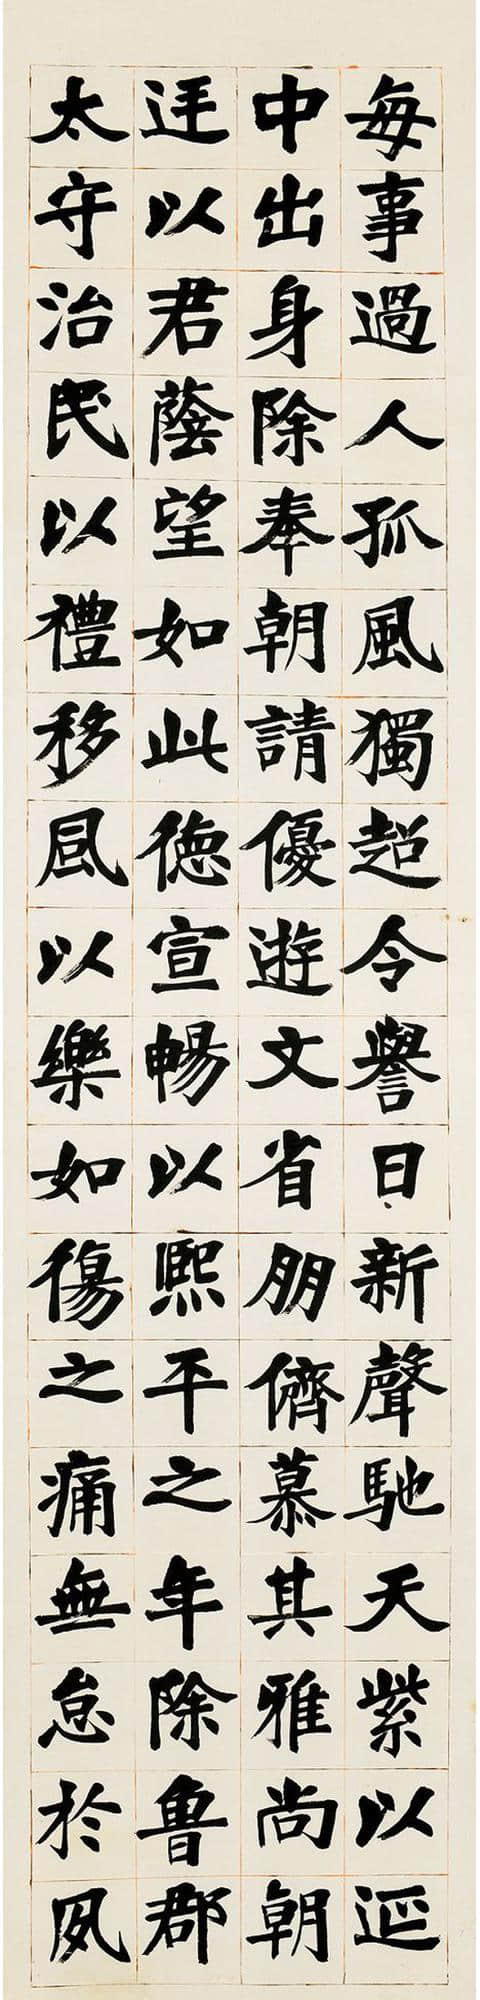 每事過人孤風獨超令譽日新聲馳天紫以延
中出身除奉朝請優遊文省朋儕慕其雅尚朝
廷以君蔭望如此德宣暢以熙平之年除魯郡
太守治民以禮移風以樂如傷之痛無怠於夙